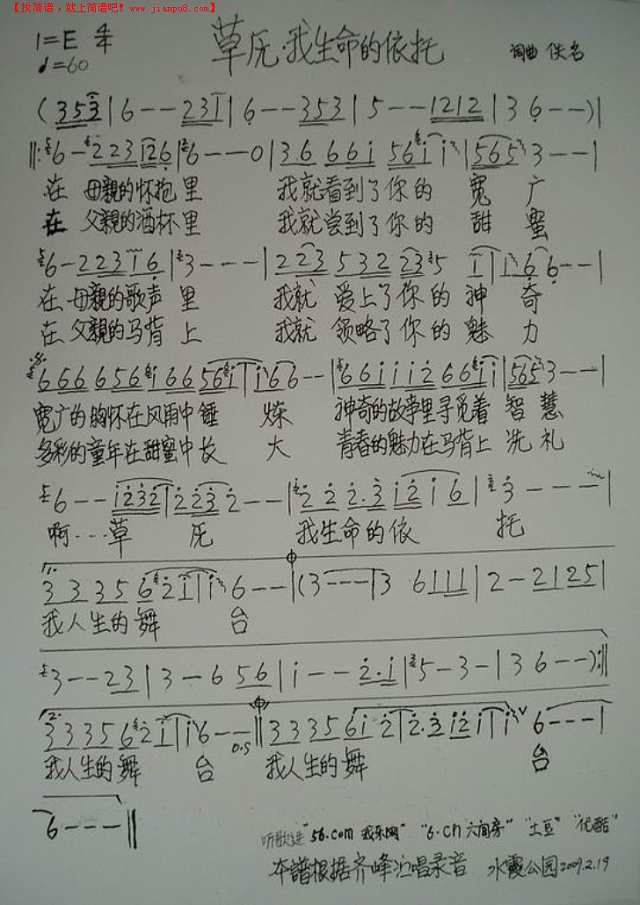 【找简谱，就上简谱吧！www.jianpu8.com】
1=E 4/4
♩=60
草原·我生命的依托
词曲 佚名
(353|6--231|6--353|5--1212|36--)|
‖:6-223126|6--0|36661 5611|5653--|
在 母親的怀抱里 我就看到了你的 宽 广
在 父親的酒杯里 我就尝到了你的 甜 蜜
6-22316|3---|223532235 1|166--|
在 母親的歌声 里 我就 爱上了你的 神 奇
在 父親的马背 上 我就 领略了你的 魅 力
666656166561|166--|6611126661|5653--|
宽广的胸怀在风雨中锤 炼 神奇的故事里寻觅着 智 慧
多彩的童年在甜蜜中长 大 青春的魅力在马背上 洗 礼
6--1232|2232--|222.31216|3---|
啊···草 原 我生命的依 托
1.
3335621|16--|(3---|3 6111|2-2125|
我人生的舞 台
3--23|3-656|1--2.1|5-3-|36--):‖
2.
3335621|16--0.5‖33356121|2.31211|6---|
我人生的舞 台 我人生的舞 台
6---‖
听歌进"56.com 我乐网" "6.cn 六间房" "土豆" "优酷"
本譜根据齐峰演唱录音 水霞公园2009.2.19